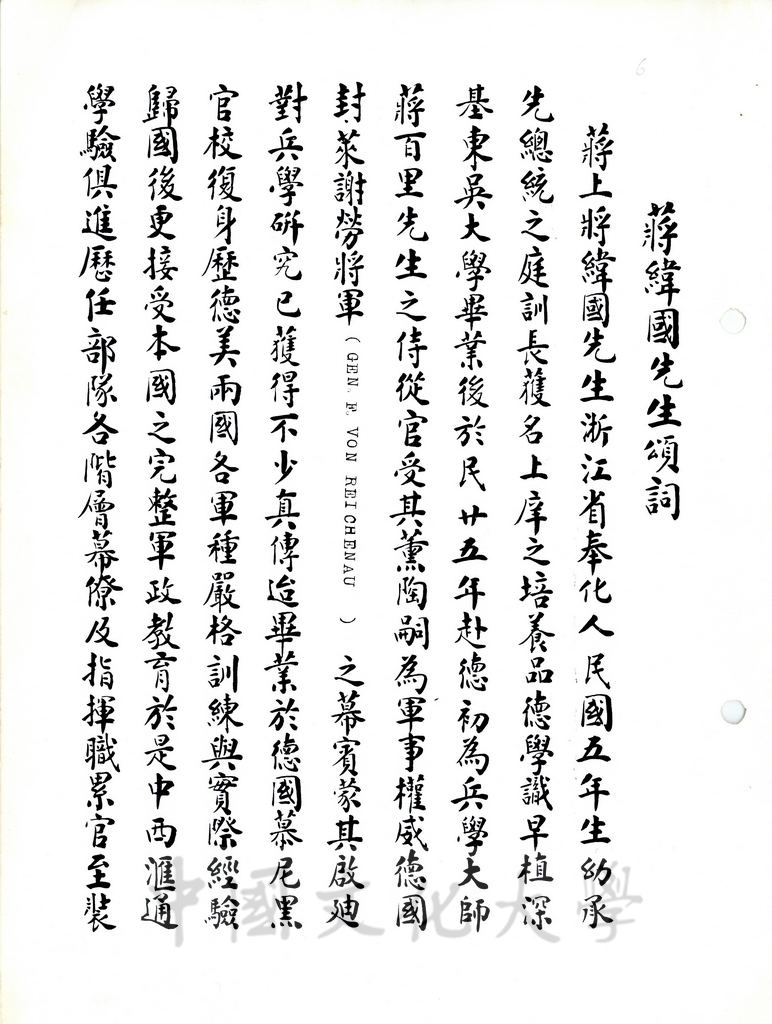 蔣緯國先生頌詞
蔣上將緯國先生浙江省奉化人民國五年生幼承
先總統之庭訓長獲名上庠之培養品德學識早植深
基東吳大學畢業後於民廿五年赴德初為兵學大師
蔣百里先生之侍從官受其薰陶嗣為軍事權威德國
封萊謝勞將軍(GEN. F. VON REICHENAU)之幕賓蒙其啟廸
對兵學研究已獲得不少真傳迨畢業於德國慕尼黑
官校復身歷德美兩國各軍種嚴格訓練與實際經驗
歸國後更接受本國之完整軍政教育於是中西滙通
學驗俱進歷任部隊各階層幕僚及指揮職累官至裝
中國文化大學
6